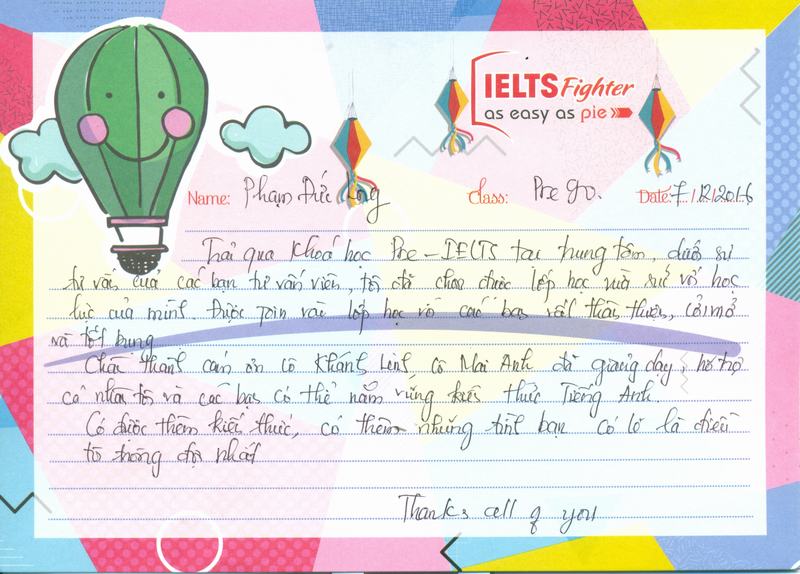 IELTS Fighter
as easy as pie
Name: Phạm Đức Long Class: Pre 90. Date: 7/12/2016
Trải qua khoá học Pre-IELTS tại trung tâm, dưới sự
tư vấn của các bạn tư vấn viên, tôi đã chọn được lớp học vừa sức với học
lực của mình. Được join vào lớp học với các bạn rất thân thiện, cởi mở
và tốt bụng
Chân thành cảm ơn cô Khánh Linh, cô Mai Anh đã giảng dạy, hỗ trợ
cá nhân tôi và các bạn có thể nắm vững kiến thức Tiếng Anh.
Có được thêm kiến thức, có thêm những tình bạn có lẽ là điều
tôi trông đợi nhất
Thanks all of you